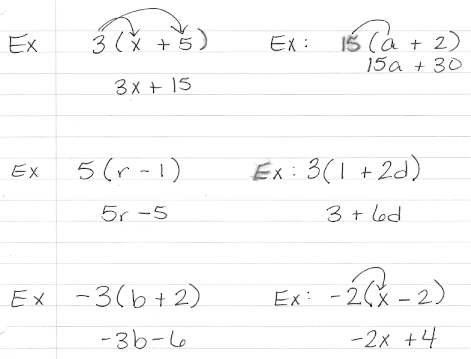 Ex 3(x + 5) Ex: 15(a + 2)
3x + 15 15a + 30
Ex 5(r - 1) Ex: 3(1 + 2d)
5r - 5 3 + 6d
Ex -3(b + 2) Ex: -2(x - 2)
-3b - 6 -2x + 4